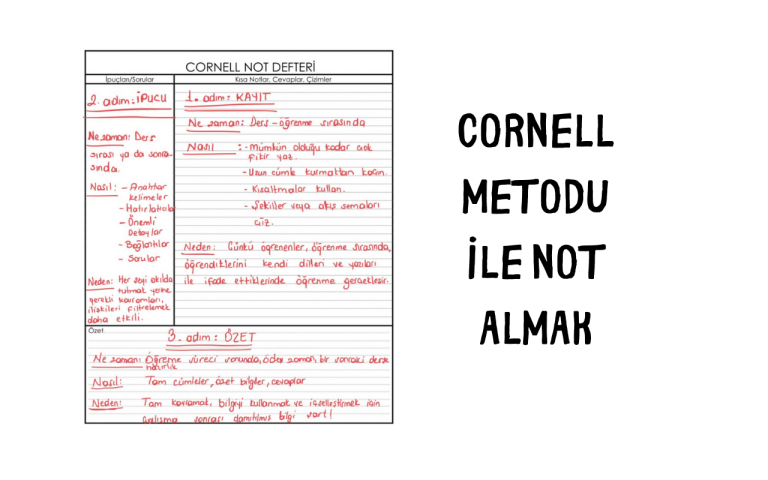 CORNELL NOT DEFTERİ
İpuçları/Sorular
Kısa Notlar, Cevaplar, Çizimler
2. adım: İPUCU
Ne zaman: Ders
sırası ya da sonra-
sında.
Nasıl: - Anahtar
kelimeler
- Hatırlatıcılar
- Önemli
Detaylar
- Bağlantılar
- Sorular
Neden: Her şeyi akılda
tutmak yerine
gerekli kavramları,
ilişkileri filtrelemek
daha etkili.
1. adım: KAYIT
Ne zaman: Ders - öğrenme sırasında
Nasıl : - Mümkün olduğu kadar çok
fikir yaz.
- Uzun cümle kurmaktan kaçın.
- Kısaltmalar kullan.
- Şekiller veya akış şemaları
çiz.
Neden: Çünkü öğrenenler, öğrenme sırasında,
öğrendiklerini kendi dilleri ve yazıları
ile ifade ettiklerinde öğrenme gerçekleşir.
Özet
3. adım: ÖZET
Ne zaman: Öğrenme süreci sonunda, ödev zamanı, bir sonraki derse
hazırlık
Nasıl: Tam cümleler, özet bilgiler, cevaplar
Neden: Tam kavramak, bilgiyi kullanmak ve içselleştirmek için
çalışma sonrası damıtılmış bilgi şart!
CORNELL
METODU
İLE NOT
ALMAK